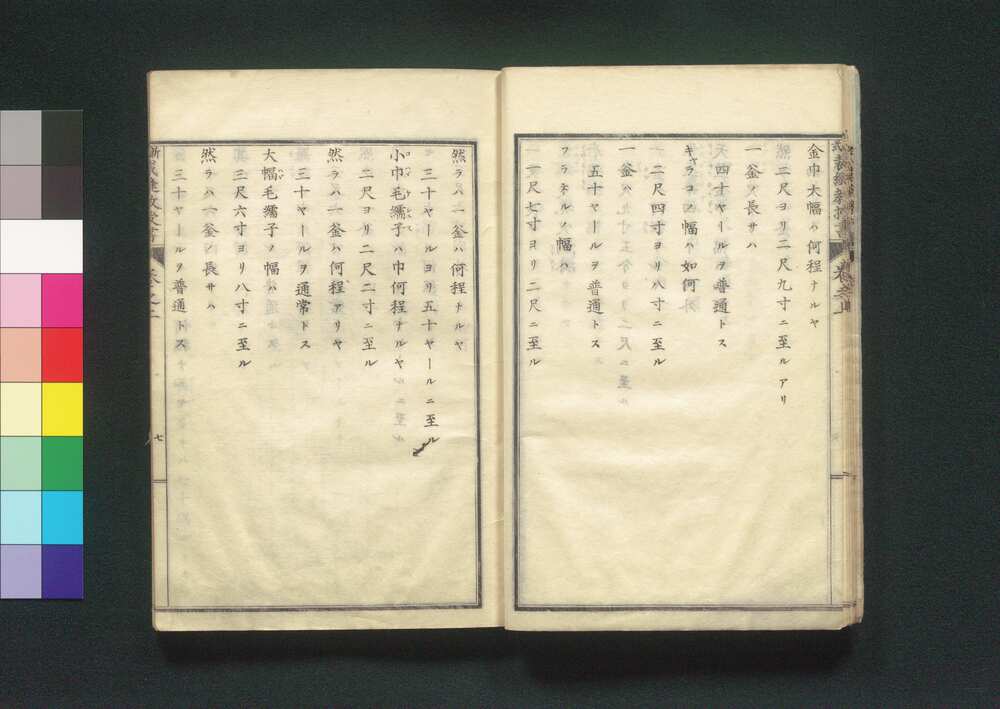 金巾大幅ハ何程ナルヤ
二尺ヨリ二尺九寸ニ至ルアリ
一釜ノ長サハ
四十ヤールヲ普通トス
キャラコノ幅ハ如何
二尺四寸ヨリ八寸ニ至ル
一釜ハ
五十ヤールヲ普通トス
フラネルノ幅ハ
一尺七寸ヨリ二尺ニ至ル
然ラハ一釜ハ何程ナルヤ
三十ヤールヨリ五十ヤールニ至ル
小巾毛繻子ハ巾何程ナルヤ
二尺ヨリ二尺二寸ニ至ル
然ラハ一釜ハ何程アリヤ
三十ヤールヲ通常トス
大幅毛繻子ノ幅ハ
三尺六寸ヨリ八寸ニ至ル
然ラハ一釜ノ長サハ
三十ヤールヲ普通トス
七